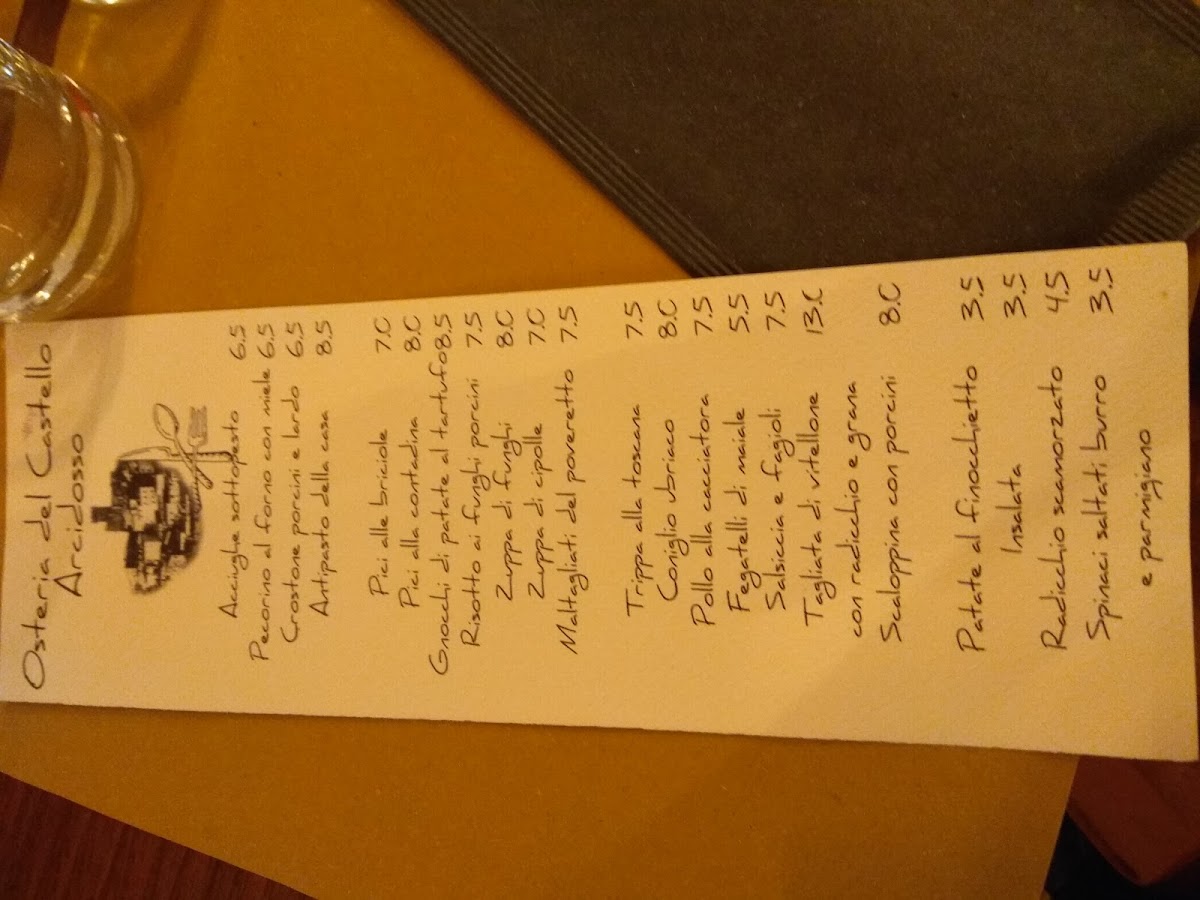 Osteria del Castello
Arcidosso
Acciughe sottopesto 6.5
Pecorino al forno con miele 6.5
Crostone porcini e lardo 6.5
Antipasto della casa 8.5
Pici alle briciole 7.0
Pici alla contadina 8.0
Gnocchi di patate al tartufo 8.5
Risotto ai funghi porcini 7.5
Zuppa di funghi 8.0
Zuppa di cipolle 7.0
Maltagliati del poveretto 7.5
Trippa alla toscana 7.5
Coniglio ubriaco 8.0
Pollo alla cacciatora 7.5
Fegatelli di maiale 5.5
Salsiccia e fagioli 7.5
Tagliata di vitellone 13.0
con radicchio e grana
Scaloppina con porcini 8.0
Patate al finocchietto 3.5
Insalata 3.5
Radicchio scamorzato 4.5
Spinaci saltati burro 3.5
e parmigiano